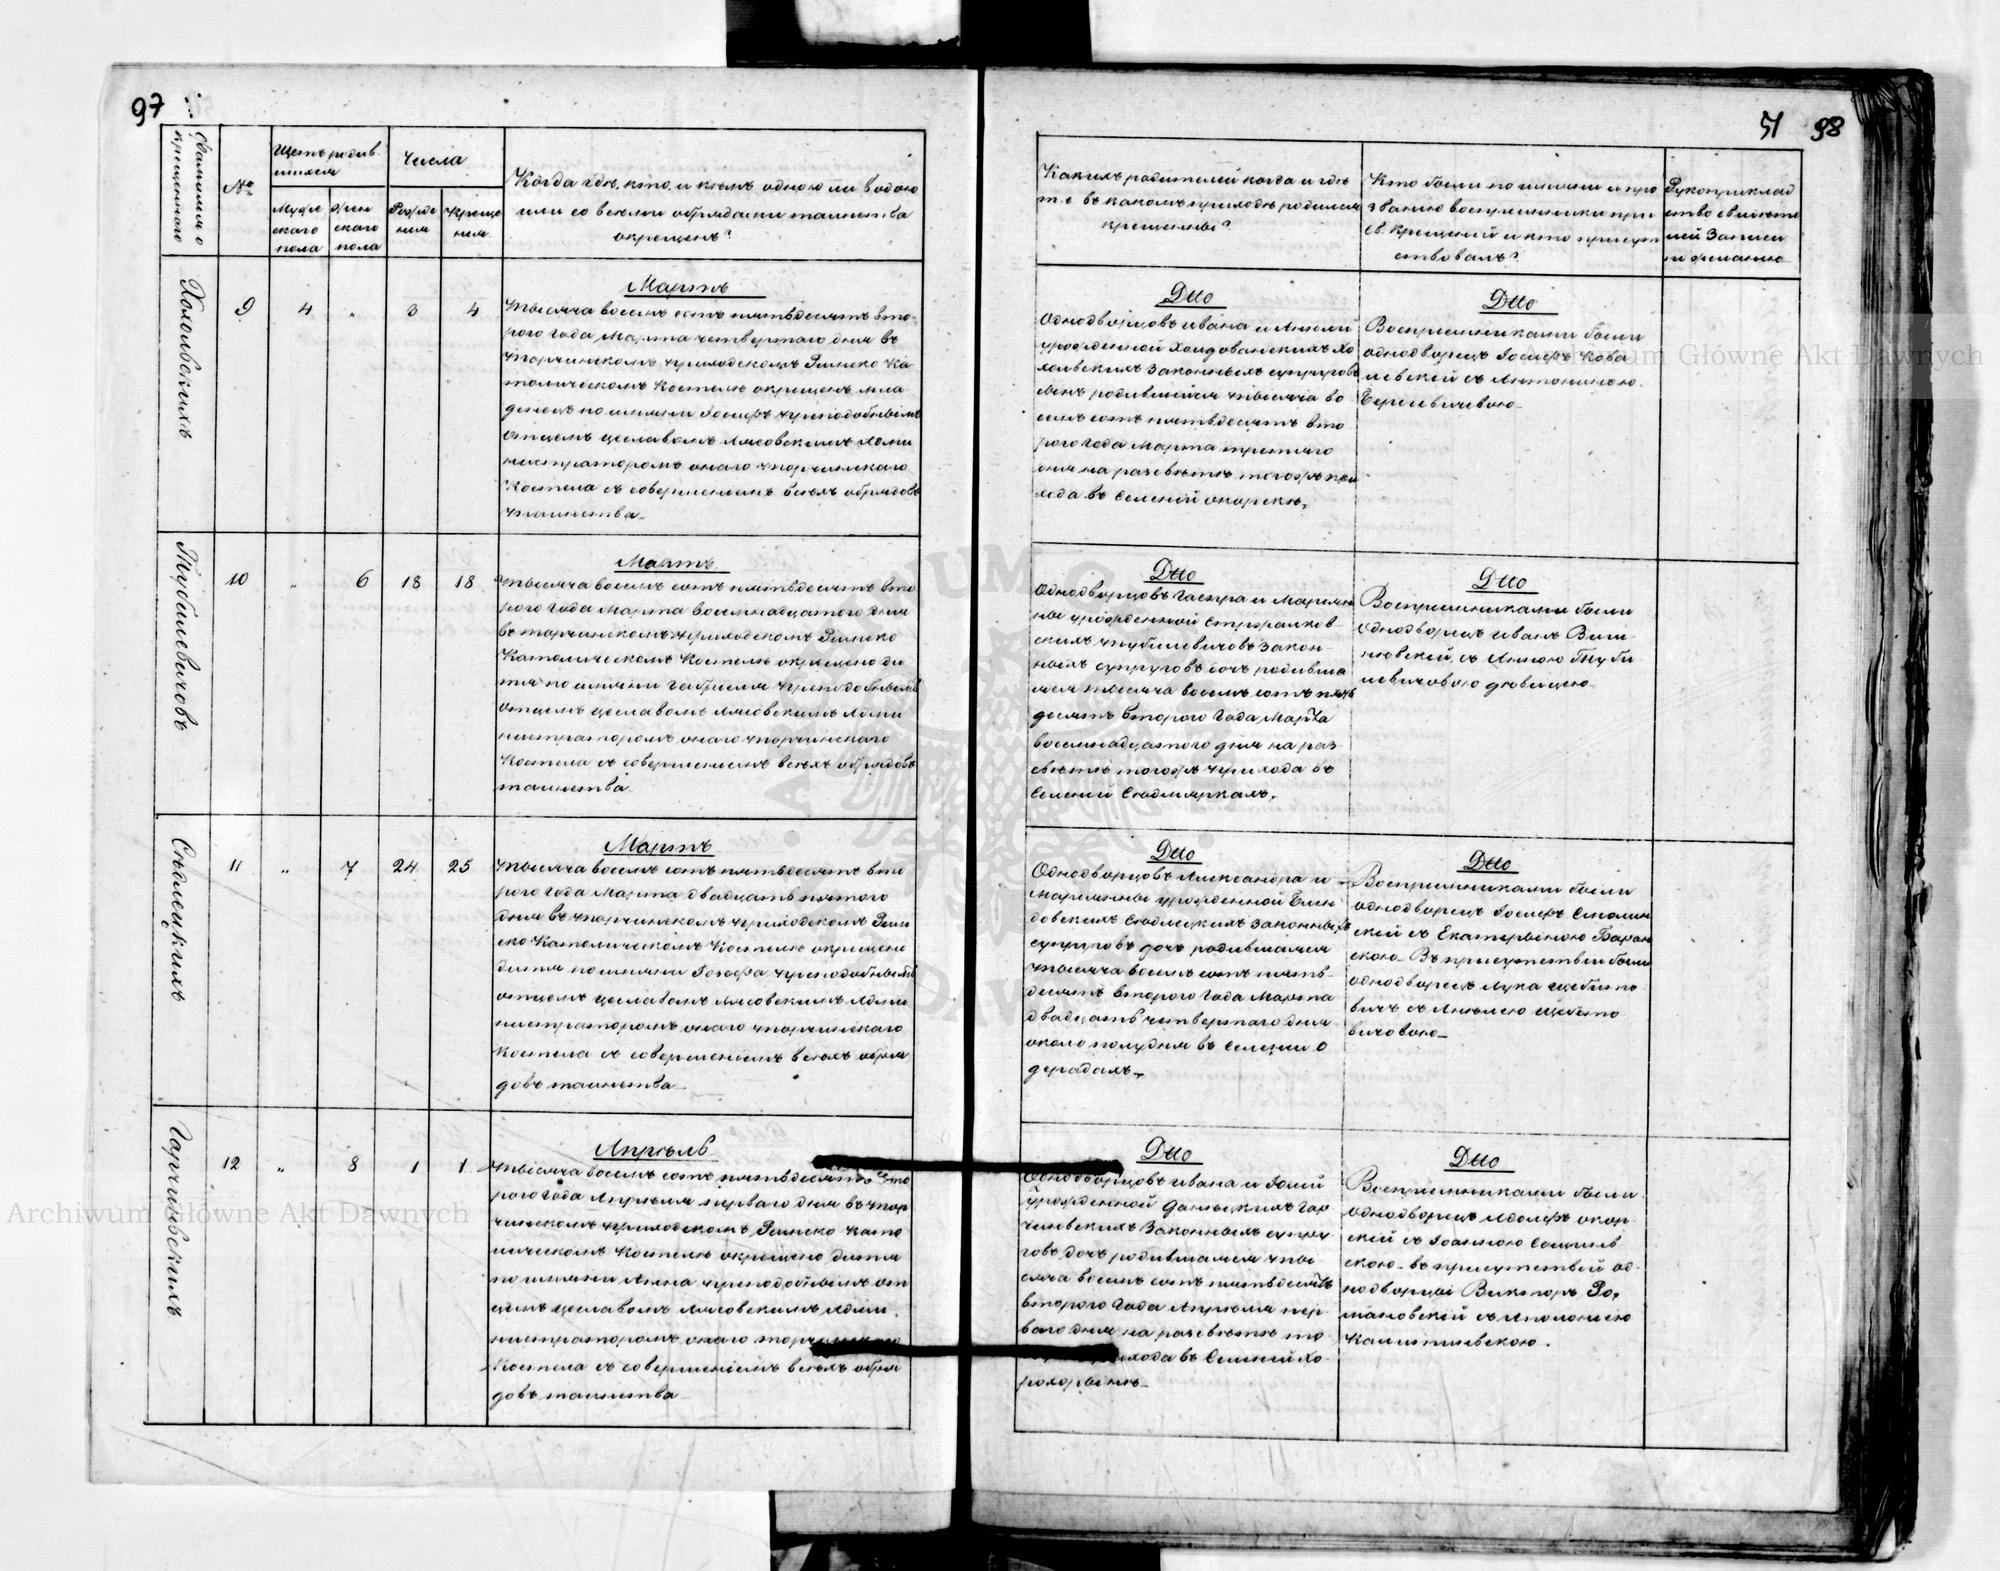 97
Фамилия
крещеннаго
№
Щетъ родив-
шихся
Муже
скаго
пола
Жен
скаго
пола
Числа
Рожде
ния
Креще
ния
Когда гдѣ, кто, и кѣмъ одною ли водою
или со всѣми обрядами таинства
окрещенъ?
Холоівскихъ
9
4
"
3
4
Мартъ
Тысяча восемь сотъ пятьдесятъ вто-
рого года Марта четвертаго дня въ
Торчинскомъ приходскомъ Римско Ка
толическомъ Костелѣ окрещенъ мла
денецъ по имяни Іосифъ преподобнымъ
отцемъ Цеславомъ Лясовскимъ Адми
нистраторомъ онаго Торчинскаго
Костела съ совершениемъ всехъ обрядовъ
таинства
Тхубилевичовъ
10
"
6
18
18
Мартъ
Тысяча восемь сотъ пятьдесятъ вто
рого года Марта восемнадцатого дня
въ торчинскомъ приходскомъ Римско
Католическомъ Костелѣ окрещено ди
тя по имяни Габриеля преподобнымъ
отцемъ Цеславомъ Лясовскимъ Адми
нистраторомъ онаго торчинского
Костела съ совершениемъ всехъ обрядовъ
таинства
Сѣдлецкихъ
11
"
7
24
25
Мартъ
Тысяча восемь сотъ пятьдесятъ вто
рого года Марта двадцать пятого
дня въ торчинскомъ приходскомъ Рим
ско Католическомъ Костелѣ окрещено
дитя по имяни Іозефа преподобнымъ
отцемъ Цеславомъ Лясовскимъ Адми
нистраторомъ онаго торчинскаго
Костела съ совершениемъ всехъ обря
довъ таинства
Гарчиньскихъ
12
"
8
1
1
Апрѣль
Тысяча восемь сотъ пятьдесятъ вто
рого года Апрѣля перваго дня въ Тор
чинскомъ приходскомъ Римско Като
лическомъ Костелѣ окрещено дитя
по имяни Анна преподобнымъ от
цемъ Цеславомъ Лясовскимъ Адми
нистраторомъ онаго торчинского
Костела съ совершениемъ всехъ обря
довъ таинства
51 98
Какихъ родителей когда и гдѣ
т. е. въ какомъ приходѣ родился
крещенный?
Кто были по имяни и про
званию восприемники при
св. крещений и кто присут
ствовалъ?
Рукоприклад
ство свидѣте
лей Записи
по желанию
Dtto
Однодворцовъ Ивана и Анели
урожденной Хо
хоівскихъ Законныхъ супруговъ
сынъ родившийся тысяча во
семь сотъ пятьдесятъ вто
рого года Марта третяго
дня на разсвѣтѣ тогожъ при
хода въ Селений Окорскѣ
Dtto
Восприемниками были
однодворецъ Іосифъ Кова
левский съ Антониною
Dtto
Однодворцовъ Гаспра и Мариян
ны урожденной
скихъ Тхубилевичовъ Закон-
ныхъ супруговъ дочь родивша
яся тысяча восемь сотъ пять
десятъ второго года Марта
восемнадцатого дня на раз-
свѣтѣ тогожъ прихода въ
Селений Сюдмяркахъ.
Dtto
Восприемниками были
однодворецъ Иванъ Виш-
невский съ Анною Тхуби
левичовою дѣвицею
Dtto
Однодворцовъ Александра и
Марианны урожденной
довскихъ Сѣдлецкихъ Законныхъ
супруговъ дочь родившаяся
тысяча восемь сотъ пять-
десятъ второго года Марта
двадцать четвертаго дня
около полудня въ Селении О
дерадахъ
Dtto
Восприемниками были
однодворецъ Іосифъ Смолин
ский съ Екатериною Баран
скою. Въ присутствии были
однодворецъ Лука
вичъ съ Анелею
вичовою
Dtto
Однодворцовъ Ивана и Юлий
Урожденной Даньскихъ Гар
чиньскихъ Законныхъ супру
говъ дочь родившаяся тыс
сяча восемь сотъ пятьдесятъ
второго года Апрѣля пер-
ваго дня на разсвѣтѣ то
прихода въ Селений Хо-
рохоринѣ
Dtto
Восприемниками были
однодворецъ Адольфъ Окор-
ский съ Іоанною
скою въ присутствий од-
нодворцы Викторъ Ро-
мановский съ Аполониею
Archiwum Główne Akt Dawnych
Archiwum Główne Akt Dawnych